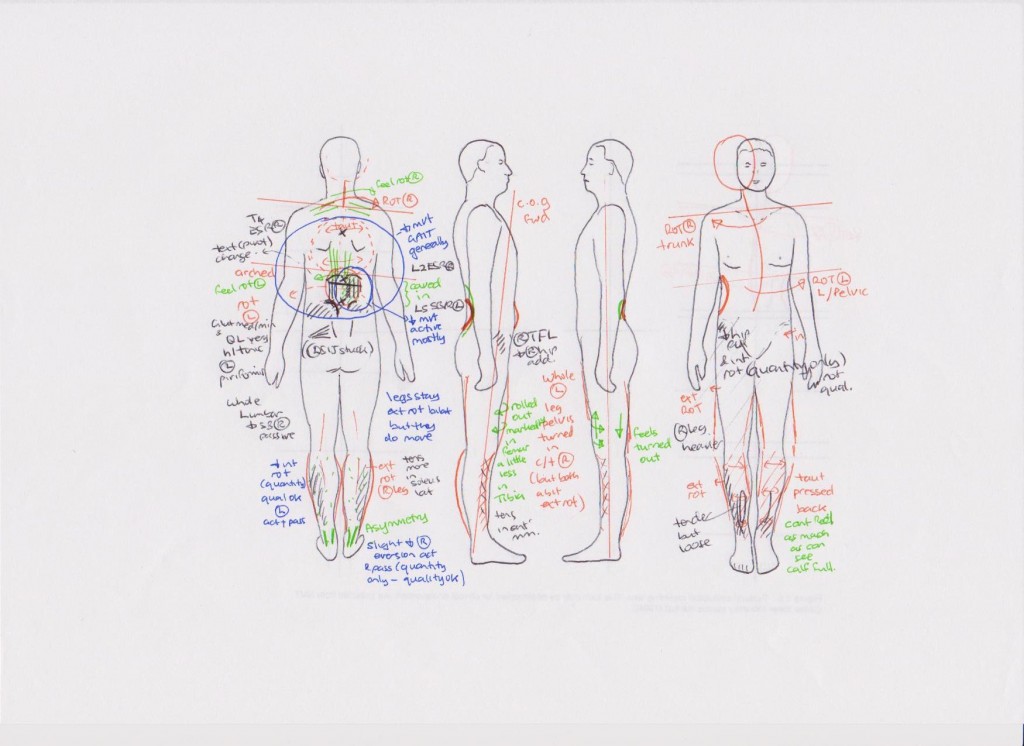 feel rot (R)
ROT (R)
T4
ESR (R)
text (pivot)
charge.
taut
↓ mvt
GMIT
generally
arched
feel rot (L)
rot
(L)
L2 ESR (R)
caved
in
L5 SSR (L)
↓ mvt
active
mostly
Glut med/min
QL very
h/tonic
(L)
piriformis
((R) SIJ stuck)
whole
Lumbar
↓ SS (R)
passive
legs stay
ext rot bilat
but they
do move
↓ int
rot
(quantity)
qual ok
(L)
act + pass
ext
rot
(R) leg
tens
more
in
soleus
lat
Asymmetry
slight ↓ (R)
eversion act
& pass (quantity
only - quality ok)
c.o.g
fwd
(R) TFL
↓ (R) hip
add.
rolled
out
markedly
in
femur
a little
less
in
Tibia
tens
in ext
mm.
whole
(L)
leg
pelvis
turned
in
c/t (R)
(but both
a bit
ext rot)
feels
turned
out
ROT (R)
trunk
ROT (L)
L/Pelvic
↓ hip
& int
rot (quantity only)
not
qual.
in
ext
ROT
(R) leg
heavier
ext
rot
tender
but
loose
taut
pressed
back
cant feel
as much
as can
see
calf full.